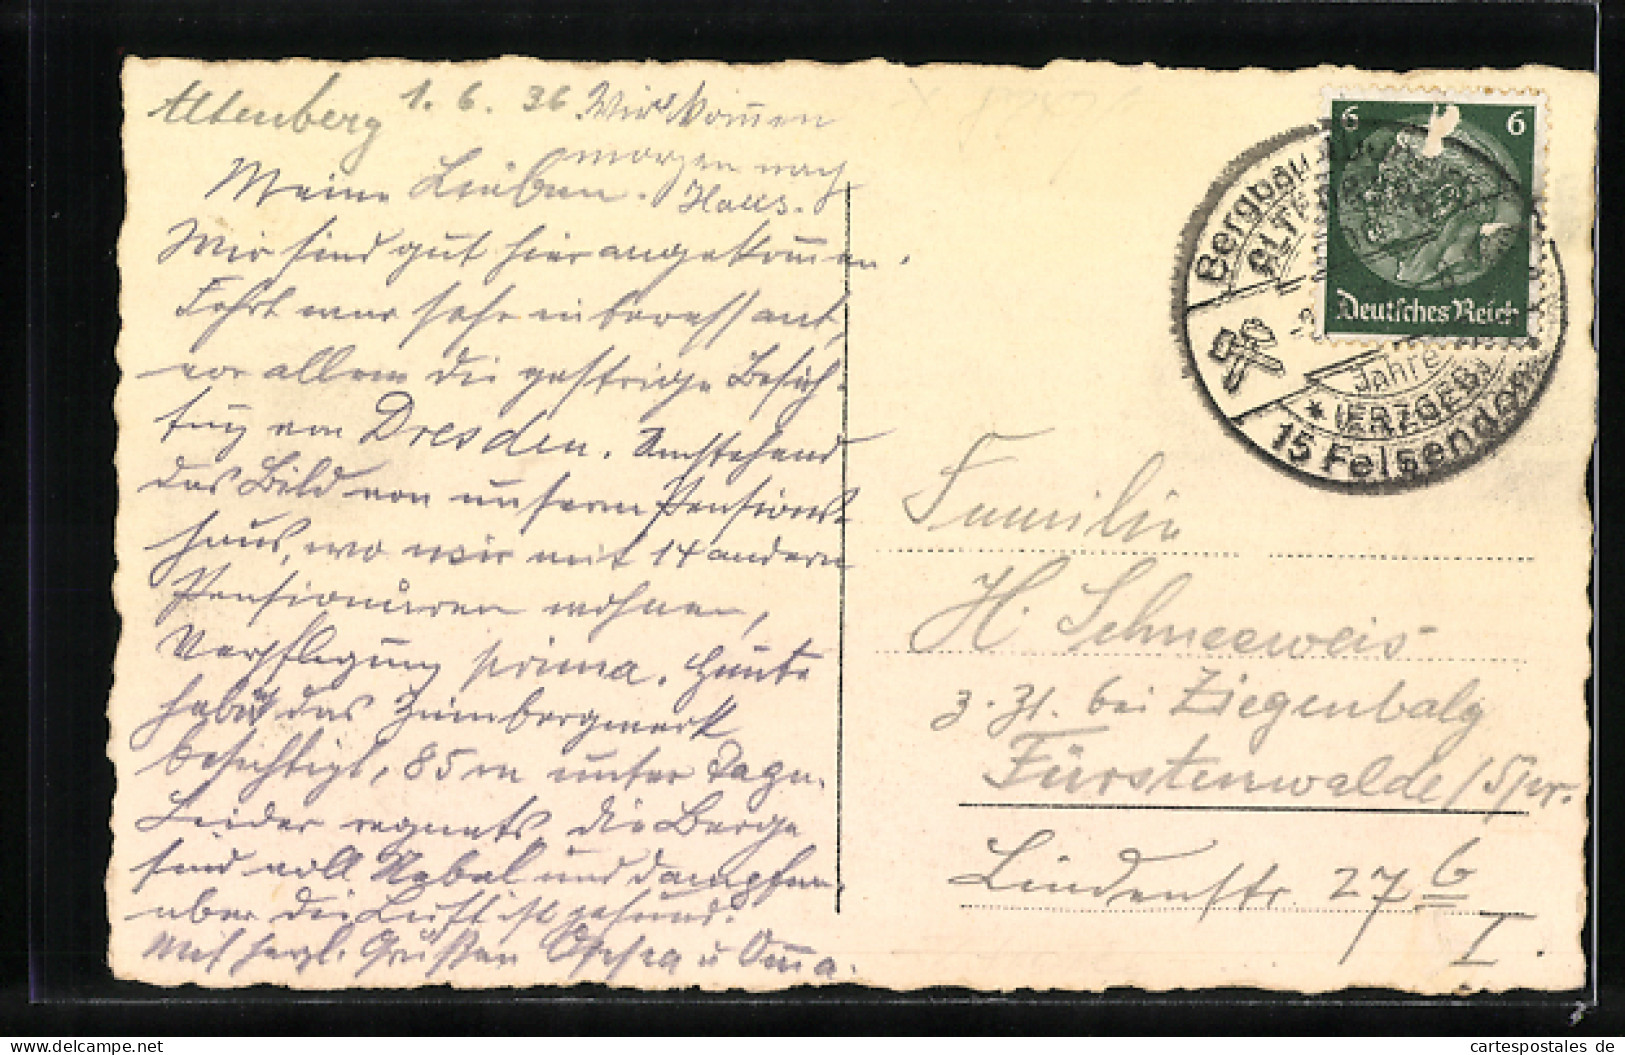 Altenberg 1.6.36 Wir kommen
morgen nach
Haus.
Meine Lieben.
Wir sind gut hier angekommen.
Fahrt war sehr interessant,
vor allem die gestrige Besich-
tig von Dresden. Umstehend
das Bild von unserm Pensions-
haus, wo wir mit 14 andern
Pensionären wohnen,
Verpflegung prima. Heute
habe das Zinnbergwerk
besichtigt, 85 m unter Tage.
Leider regnets, die Berge
sind voll Nebel und dampfen,
aber die Luft ist gesund.
Mit herzl. Grüßen u Oma.
6 6
Deutsches Reich
Bergbau
ALTENBERG
Jahre
* (ERZGEB)
15 Felsendom
Familie
H. Schneeweis
z. Zt. bei Ziegenbalg
Fürstenwalde / Spr.
Lindenstr. 27 b
I.
www.cartespostales.de
cartespostales de